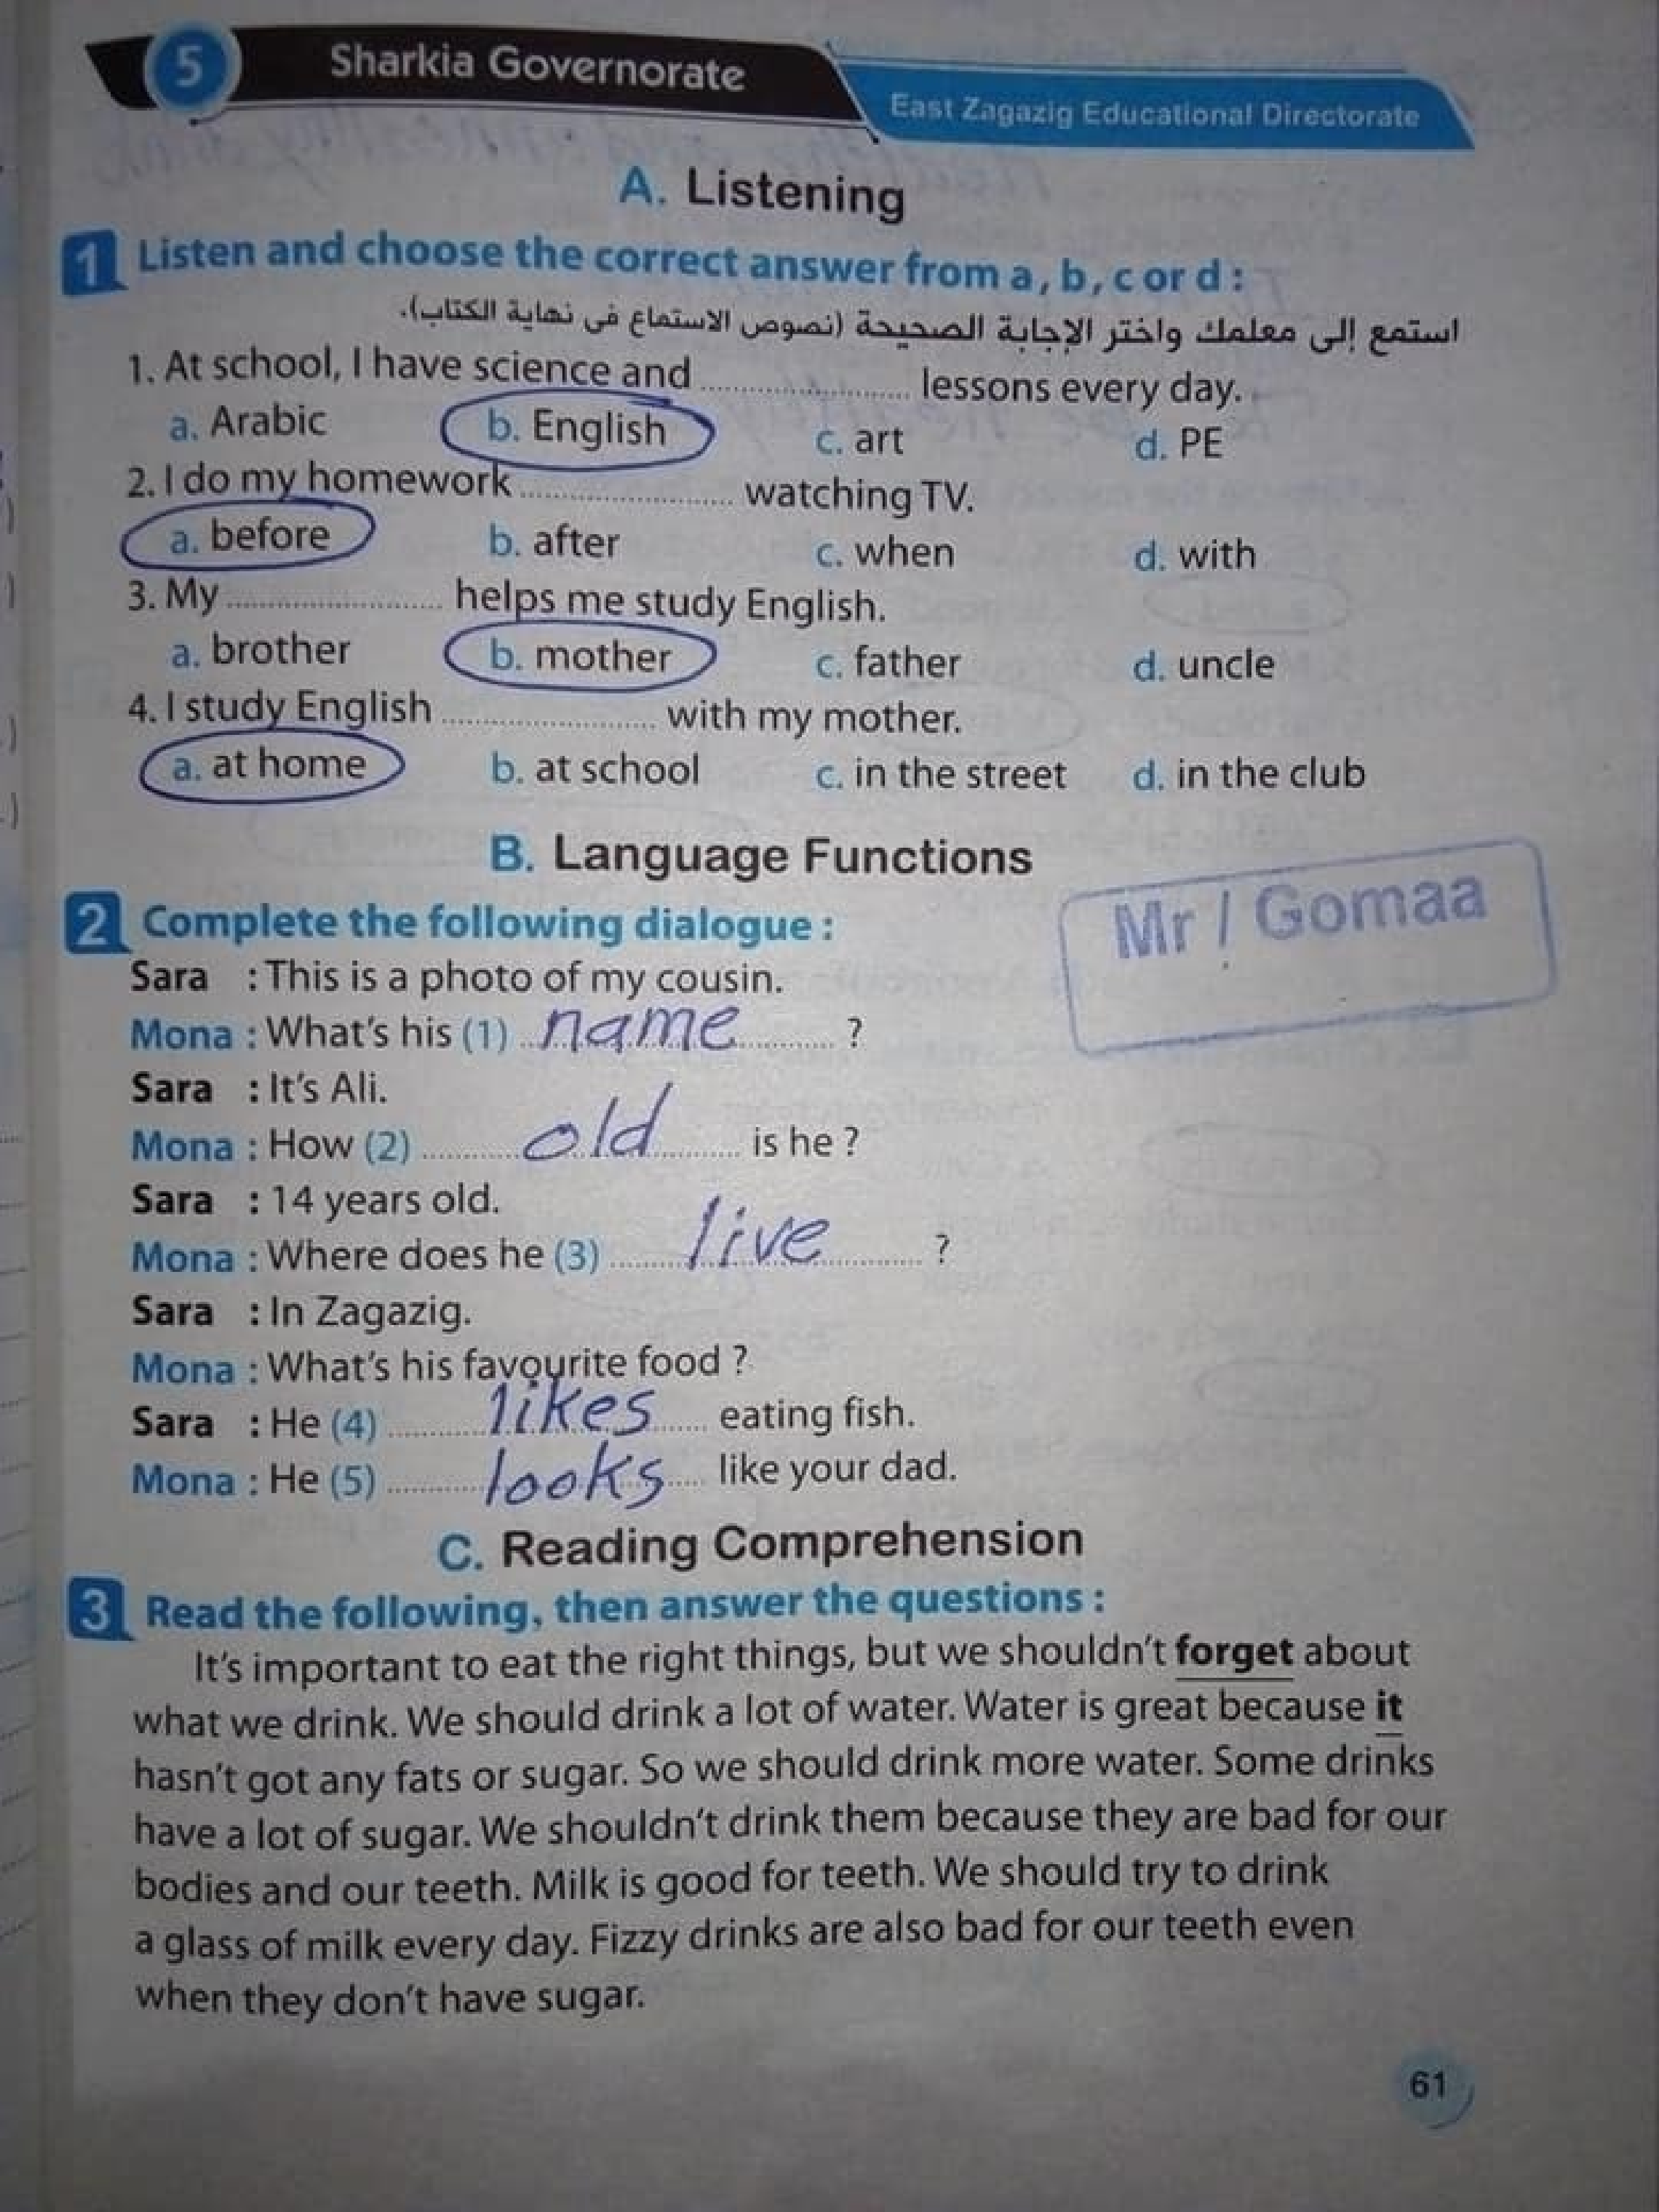 5 Sharkia Governorate
East Zagazig Educational Directorate
A. Listening
1 Listen and choose the correct answer from a, b, c or d :
استمع إلى معلمك واختر الإجابة الصحيحة (نصوص الاستماع فى نهاية الكتاب).
1. At school, I have science and .................... lessons every day.
a. Arabic b. English c. art d. PE
2. I do my homework .................... watching TV.
a. before b. after c. when d. with
3. My .................... helps me study English.
a. brother b. mother c. father d. uncle
4. I study English .................... with my mother.
a. at home b. at school c. in the street d. in the club
B. Language Functions
Mr / Gomaa
2 Complete the following dialogue :
Sara : This is a photo of my cousin.
Mona : What's his (1) name ?
Sara : It's Ali.
Mona : How (2) old is he ?
Sara : 14 years old.
Mona : Where does he (3) live ?
Sara : In Zagazig.
Mona : What's his favourite food ?
Sara : He (4) likes eating fish.
Mona : He (5) looks like your dad.
C. Reading Comprehension
3 Read the following, then answer the questions :
It's important to eat the right things, but we shouldn't forget about
what we drink. We should drink a lot of water. Water is great because it
hasn't got any fats or sugar. So we should drink more water. Some drinks
have a lot of sugar. We shouldn't drink them because they are bad for our
bodies and our teeth. Milk is good for teeth. We should try to drink
a glass of milk every day. Fizzy drinks are also bad for our teeth even
when they don't have sugar.
61